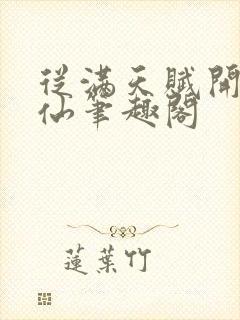 從滿天賦開
仙筆趣閣
蓮葉竹